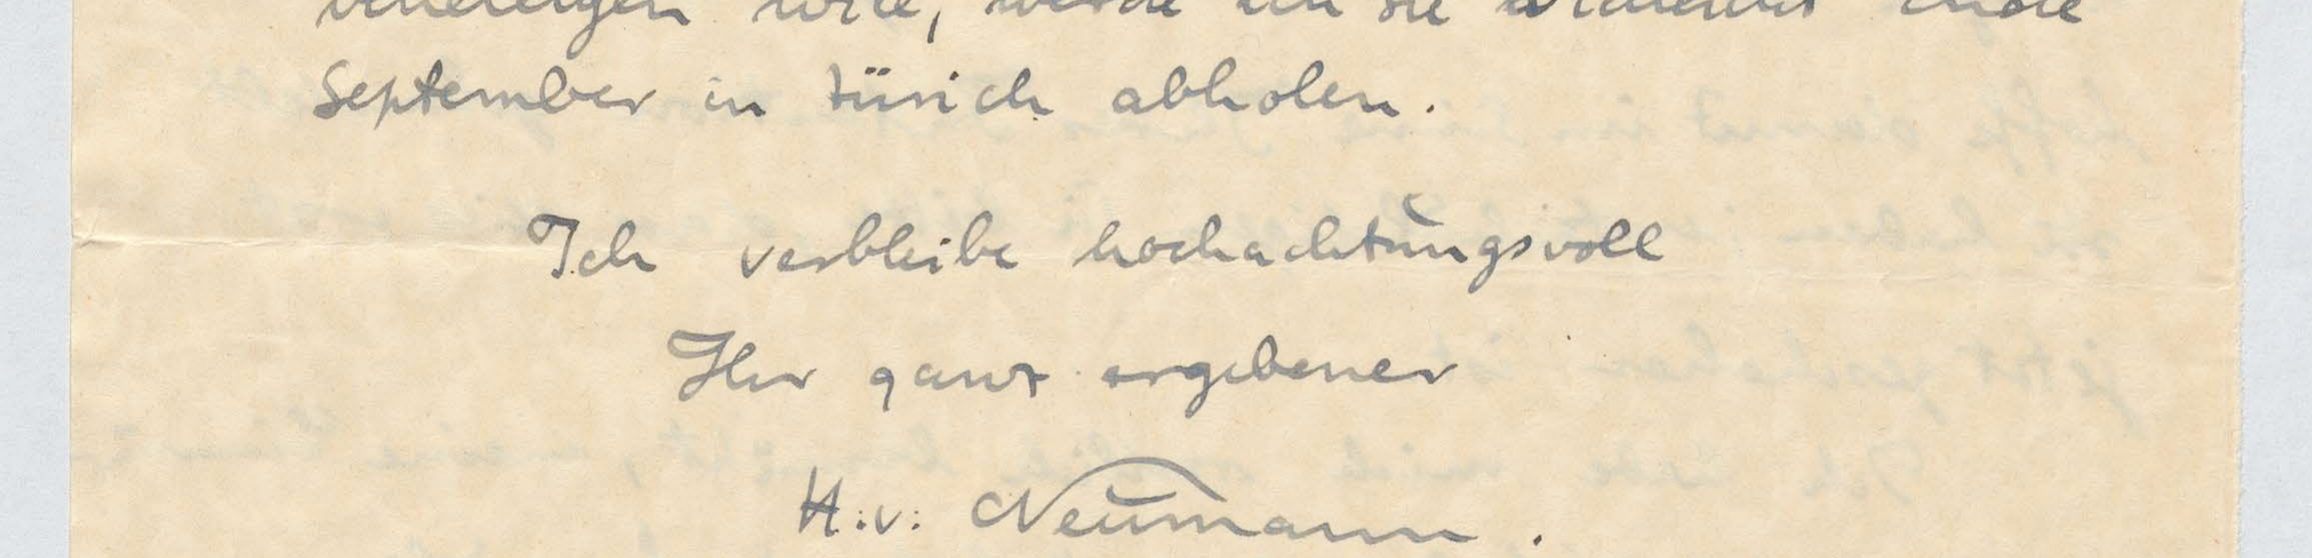 werde ich sie Ende
September in Zürich abholen.
Ich verbleibe hochachtungsvoll
Ihr ganz ergebener
H. v. Neumann.